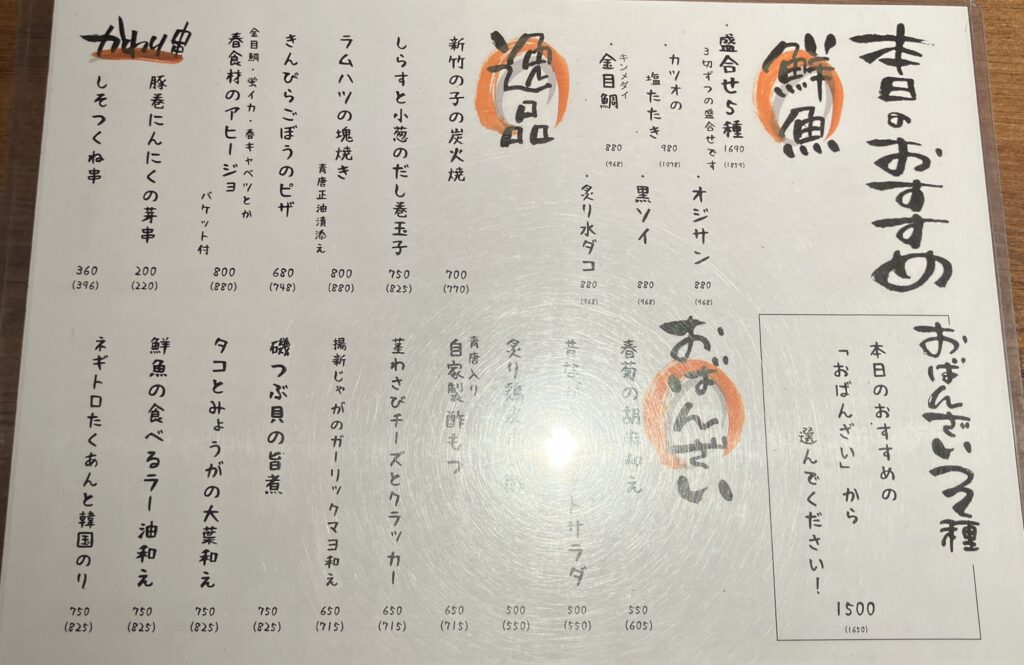 本日のおすすめ
鮮魚
・盛合せ5種
3切ずつの盛合せです
1690
(1859)
・カツオの
塩たたき
980
(1078)
キンメダイ
・金目鯛
880
(968)
・オジサン
880
(968)
・黒ソイ
880
(968)
・炙り水ダコ
880
(968)
逸品
新竹の子の炭火焼
700
(770)
しらすと小葱のだし巻玉子
750
(825)
ラムハツの塊焼き
青唐正油漬添え
800
(880)
きんぴらごぼうのピザ
680
(748)
金目鯛・蛍イカ・春キャベツとか
春食材のアヒージョ
バケット付
800
(880)
かわり串
豚巻にんにくの芽串
200
(220)
しそつくね串
360
(396)
おばんざい2種
本日のおすすめの
「おばんざい」から
選んでください!
1500
(1650)
おばんざい
春菊の胡麻和え
550
(605)
サラダ
500
(550)
炙り鶏
500
(550)
青唐入り
自家製酢もつ
650
(715)
茎わさびチーズとクラッカー
650
(715)
揚新じゃがのガーリックマヨ和え
650
(715)
磯つぶ貝の旨煮
750
(825)
タコとみょうがの大葉和え
750
(825)
鮮魚の食べるラー油和え
750
(825)
ネギトロたくあんと韓国のり
750
(825)